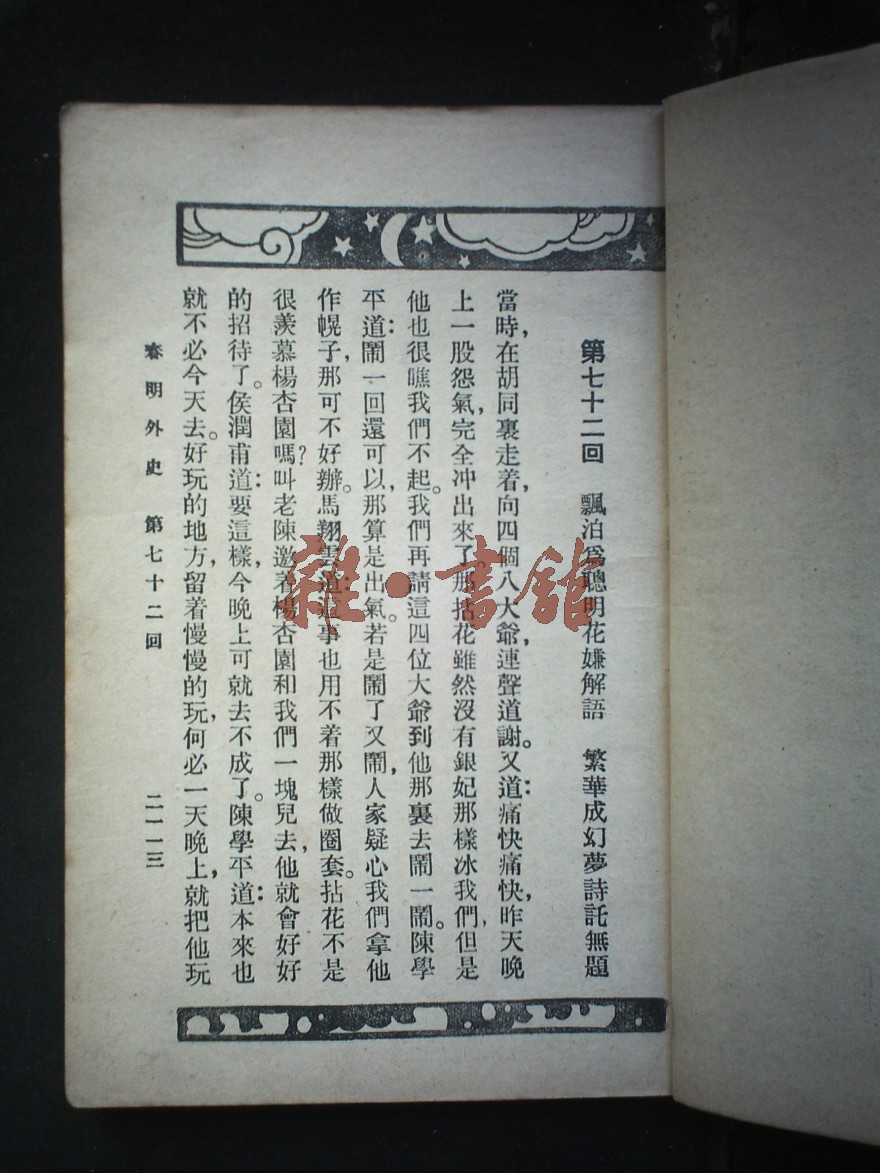 第七十二回　飄泊爲聰明花嫌解語　繁華成幻夢詩託無題
當時，在胡同裏走着，向四個八大爺，連聲道謝。又道：痛快痛快，昨天晚
上一股怨氣，完全冲出來了。那拈花雖然沒有銀妃那樣冰我們，但是
他也很瞧我們不起。我們再請這四位大爺到他那裏去鬧一鬧。陳學
平道：鬧一回還可以，那算是出氣。若是鬧了又鬧，人家疑心我們拿他
作幌子，那可不好辦。馬翔雲道：這事也用不着那樣做圈套。拈花不是
很羨慕楊杏園嗎？叫老陳邀着楊杏園和我們一塊兒去，他就會好好
的招待了。侯潤甫道：要這樣，今晚上可就去不成了。陳學平道：本來也
就不必今天去。好玩的地方，留着慢慢的玩，何必一天晚上，就把他玩
春明外史　第七十二回　二一一三
雜·書舘